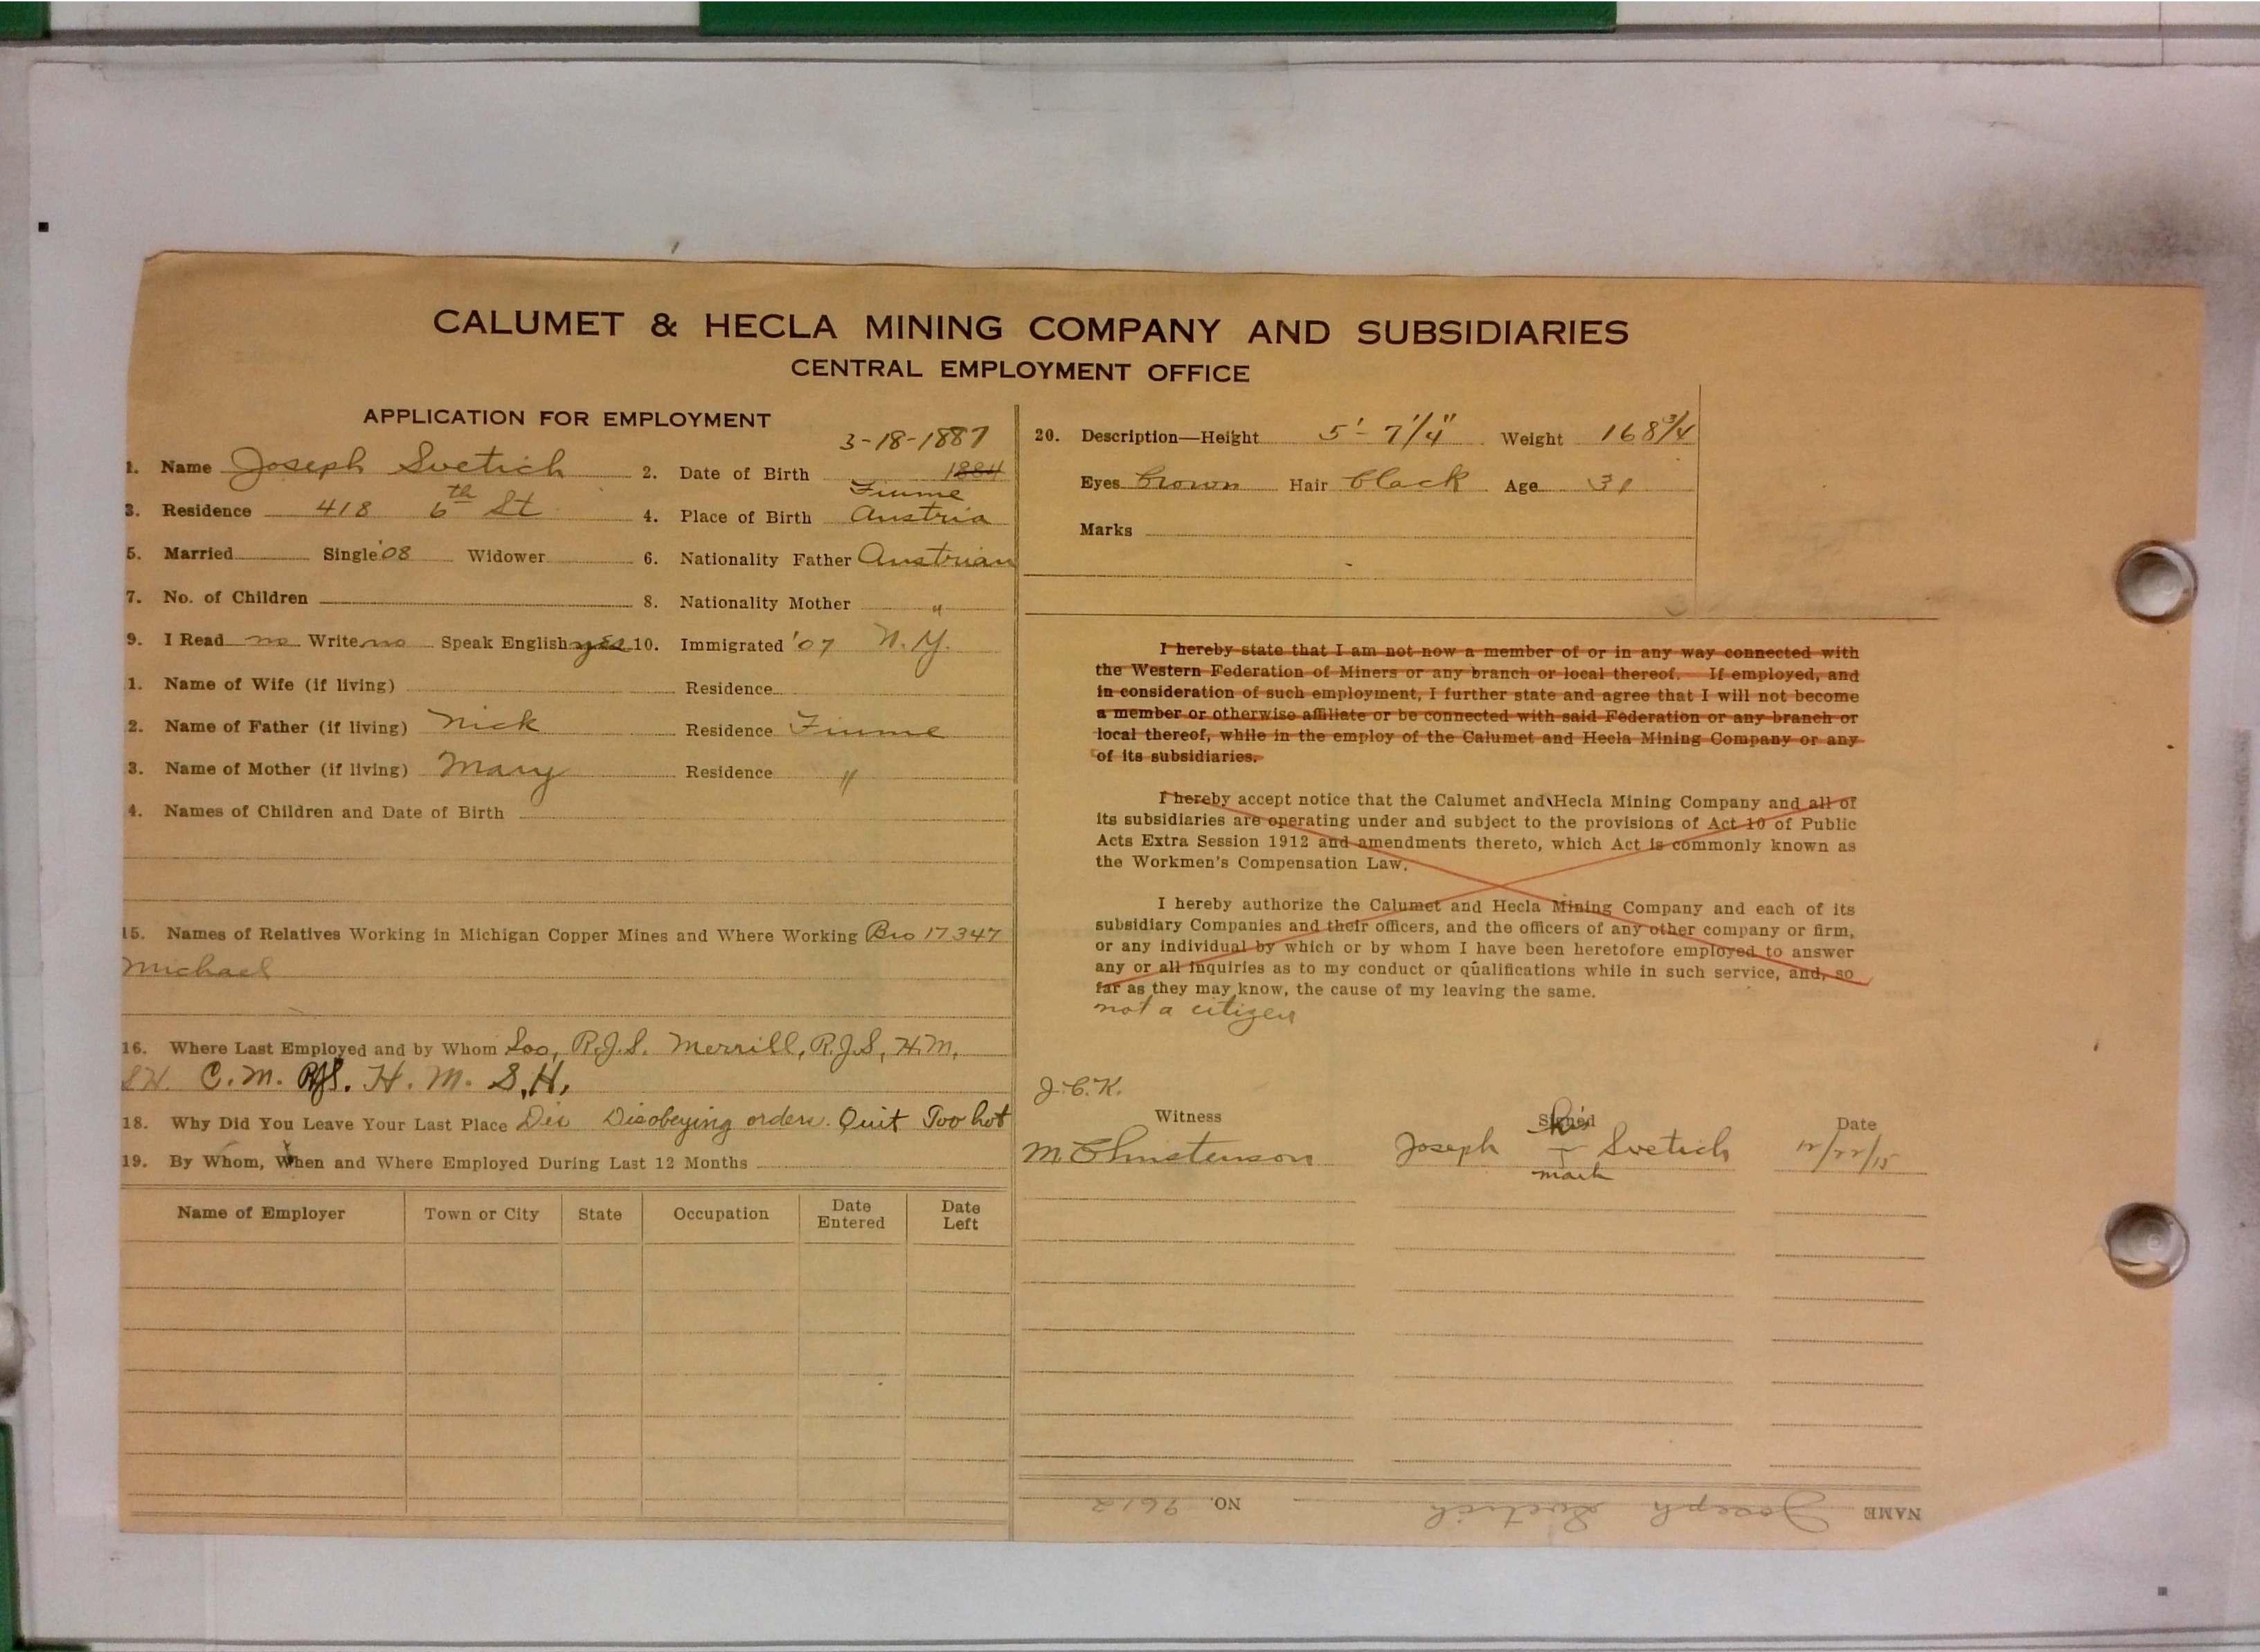 CALUMET & HECLA MINING COMPANY AND SUBSIDIARIES
CENTRAL EMPLOYMENT OFFICE
APPLICATION FOR EMPLOYMENT
3-18-1887
1. Name Joseph Svetich 2. Date of Birth 1884
Fiume
3. Residence 418 6th St 4. Place of Birth Austria
5. Married Single '08 Widower 6. Nationality Father Austrian
7. No. of Children 8. Nationality Mother "
9. I Read no Write no Speak English yes 10. Immigrated '07 N.Y.
1. Name of Wife (if living) Residence
2. Name of Father (if living) Nick Residence Fiume
3. Name of Mother (if living) Mary Residence "
4. Names of Children and Date of Birth
15. Names of Relatives Working in Michigan Copper Mines and Where Working Bro 17347
Michael
16. Where Last Employed and by Whom Soo, R.J.S. Merrill, R.J.S, H.M.
S.H. C.M. RJS. H. M. S.H.
18. Why Did You Leave Your Last Place Dis Disobeying orders. Quit Too hot
19. By Whom, When and Where Employed During Last 12 Months
Name of Employer Town or City State Occupation Date Entered Date Left
20. Description—Height 5'- 7 1/4" Weight 168 3/4
Eyes brown Hair black Age 31
Marks
I hereby state that I am not now a member of or in any way connected with
the Western Federation of Miners or any branch or local thereof. If employed, and
in consideration of such employment, I further state and agree that I will not become
a member or otherwise affiliate or be connected with said Federation or any branch or
local thereof, while in the employ of the Calumet and Hecla Mining Company or any
of its subsidiaries.
I hereby accept notice that the Calumet and Hecla Mining Company and all of
its subsidiaries are operating under and subject to the provisions of Act 10 of Public
Acts Extra Session 1912 and amendments thereto, which Act is commonly known as
the Workmen's Compensation Law.
I hereby authorize the Calumet and Hecla Mining Company and each of its
subsidiary Companies and their officers, and the officers of any other company or firm,
or any individual by which or by whom I have been heretofore employed to answer
any or all inquiries as to my conduct or qualifications while in such service, and, so
far as they may know, the cause of my leaving the same.
not a citizen
J.C.K.
Witness Signed Date
his
M Christenson Joseph Svetich 12/22/15
mark
NAME Joseph Svetich NO. 9612